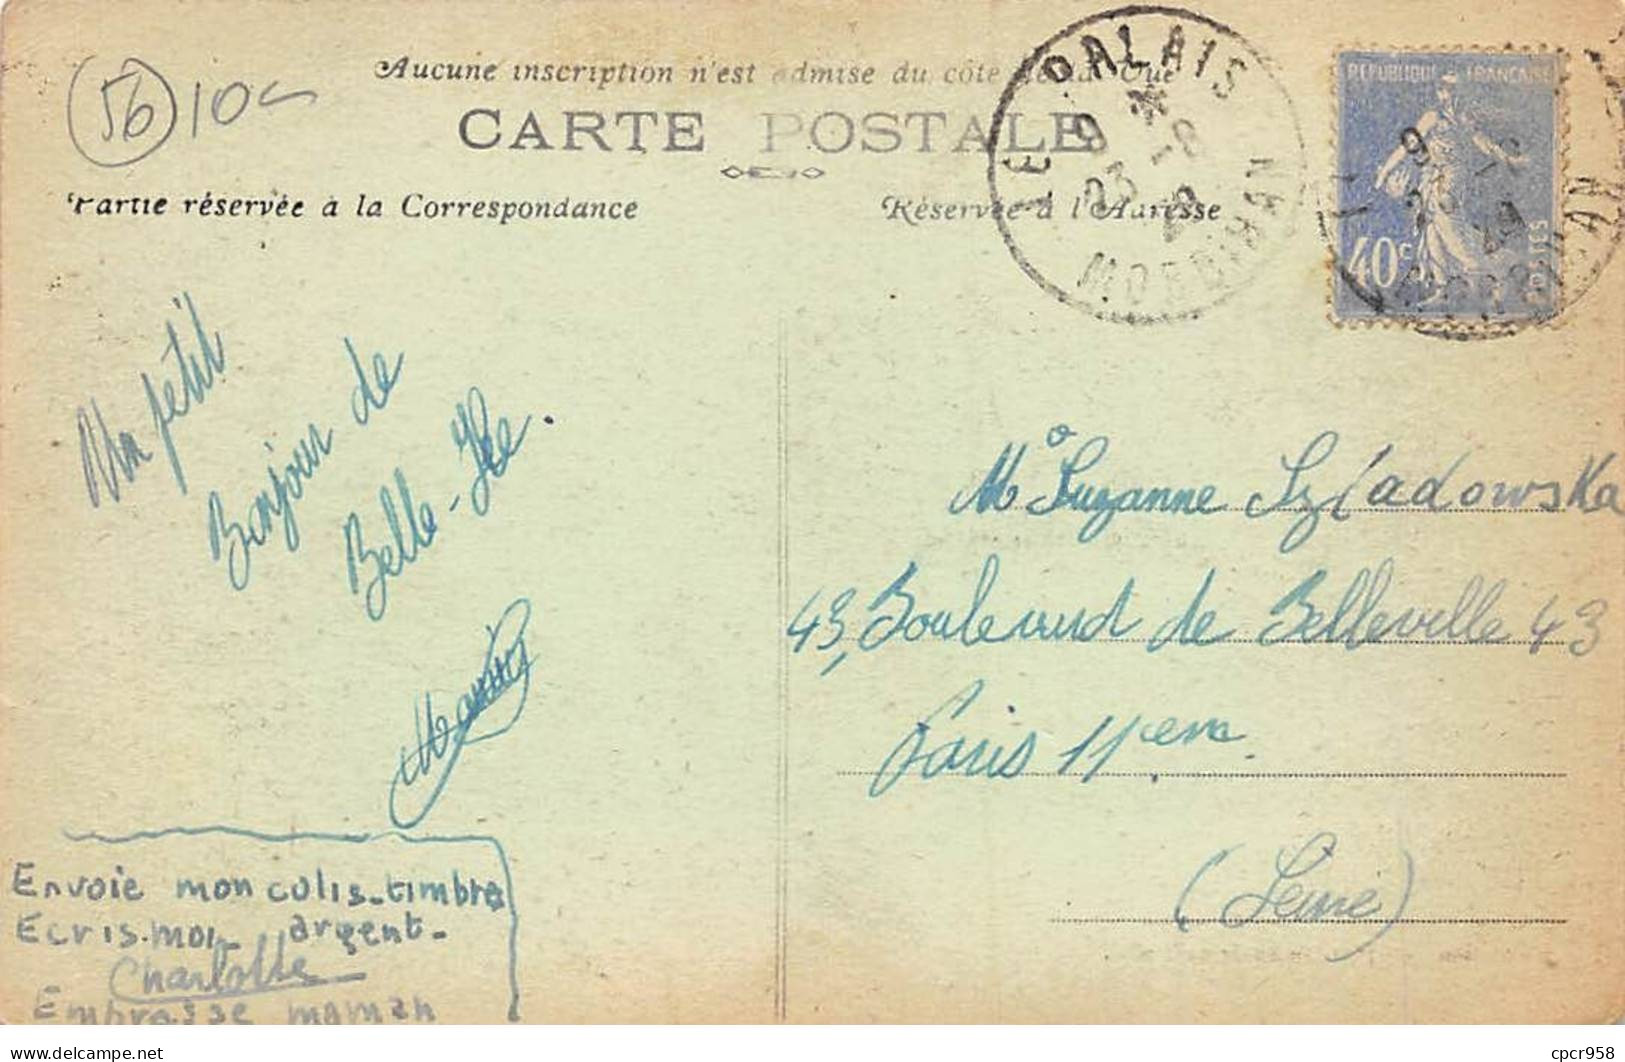 56 10
Aucune inscription n'est admise du côté de la Vue
CARTE POSTALE
Partie réservée à la Correspondance
Réservée à l'Adresse
LE PALAIS
9 * 23 -8 29
MORBIHAN
REPUBLIQUE FRANÇAISE
40c
POSTES
9
23 -8
29
MORBIHAN
Un petit
Bonjour de
Belle-Ile.
Envoie mon colis-timbre
Ecris-moi argent-
Charlotte
Embrasse maman
Suzanne Szladowska
43, Boulevard de Belleville 43
Paris 11em
(Seine)
cpcr958